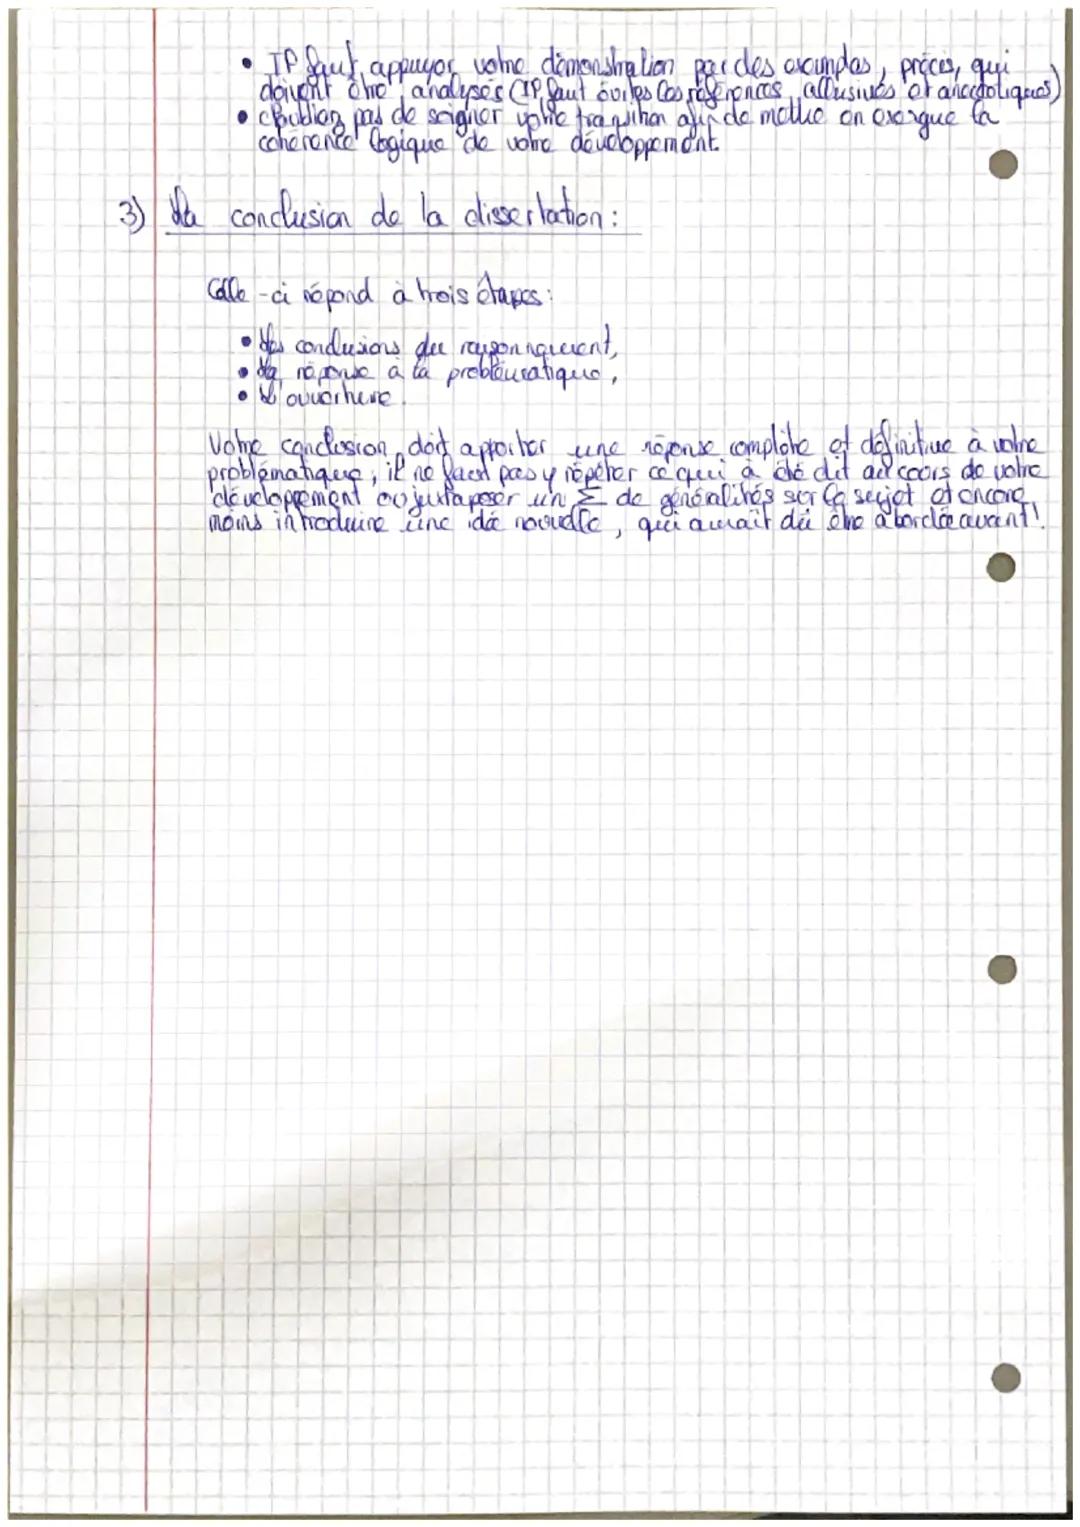 • Il faut appuyer votre démonstration par des exemples, précis, qui
doivent être analysés (Il faut éviter les références allusives et anecdotiques)
• oubliez pas de soigner votre transition afin de mettre en exergue la
cohérence logique de votre développement.
3) La conclusion de la dissertation :
Celle-ci répond à trois étapes :
• Les conclusions du raisonnement,
• La réponse à la problématique,
• L'ouverture.
Votre conclusion doit apporter une réponse complète et définitive à votre
problématique ; il ne faut pas y répéter ce qui à été dit au cours de votre
développement ou juxtaposer un Σ de généralités sur le sujet et encore
moins introduire une idée nouvelle, qui aurait dû être abordée avant !